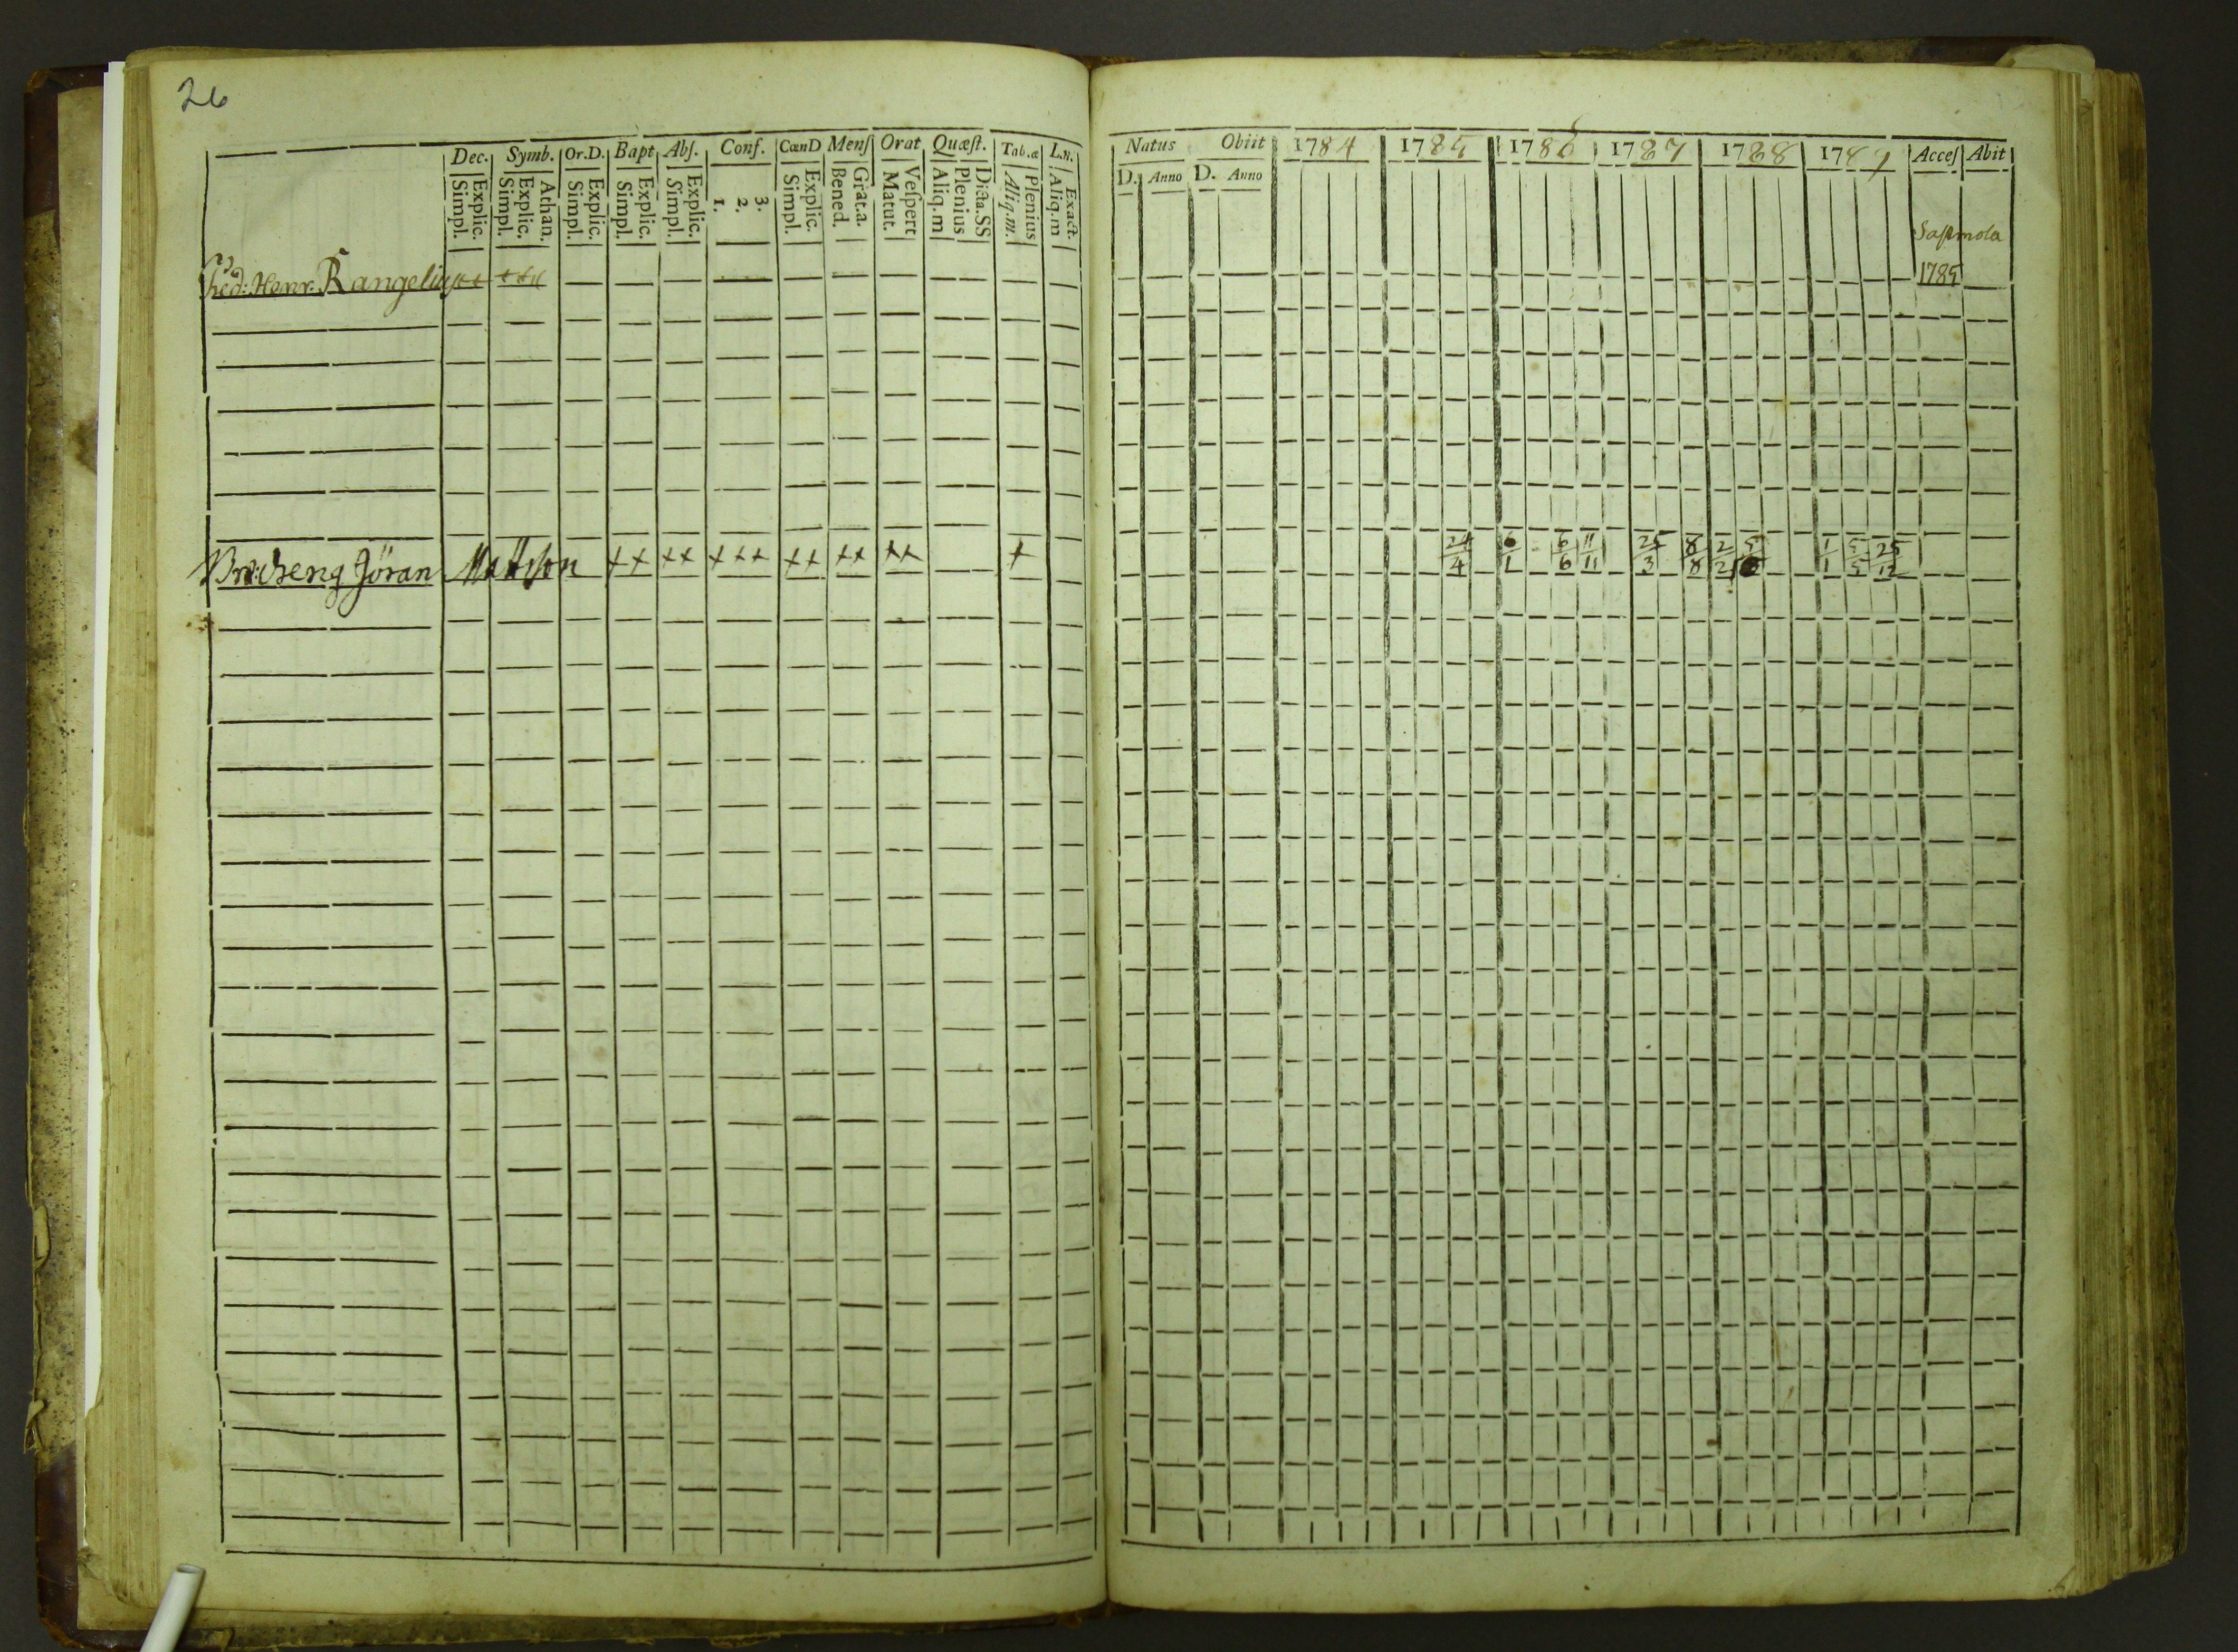 26
Dec. Symb. Or.D. Bapt Abſ. Conf. CœnD Menſ Orat Quæſt. Tab.æ L.n.
Explic. Simpl. Athan. Explic. Simpl. Explic. Simpl. Explic. Simpl. Explic. Simpl. 3. 2. 1. Explic. Simpl. Grat.a. Bened. Veſpert Matut. Dicta.SS Plenius Aliq.m Plenius Aliq.m. Exact. Aliq.m
Henr: Rangelius xx xxx
Jöran Mattsson xx xx xxx xx xx xx x
Natus Obiit 1784 1785 1786 1787 1788 1789 Acceſ Abit
D. Anno D. Anno
Sastmola
1785
24/4 6/1 6/6 11/11 25/3 8/8 2/2 1/1 5/5 25/12